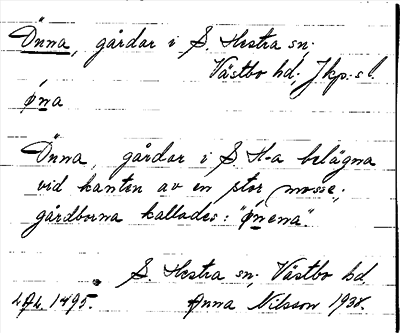 Önna, gårdar i S. Hestra sn;
Västbo hd; Jkp:s l.
ǿna
Önna, gårdar i S. H-a belägna
vid kanten av en stor mosse;
gårdborna kallades: "ǿnena".
S. Hestra sn; Västbo hd
1495. Anna Nilsson 1938.